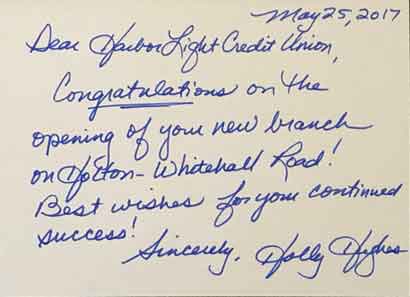 May 25, 2017
Dear Harbor Light Credit Union,
Congratulations on the
opening of your new branch
on Holton-Whitehall Road!
Best wishes for your continued
success!
Sincerely, Holly Hughes